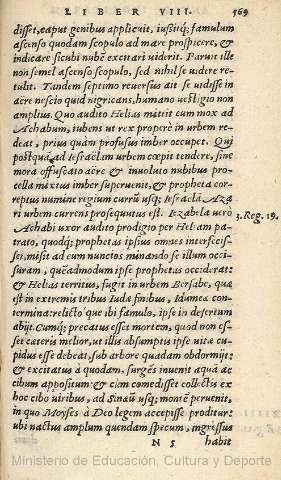 LIBER VIII. 569
disset, caput genibus applicuit, iussitq́; famulum
ascenso quodam scopulo ad mare prospicere, &
indicare sicubi nubē excitari viderit. Paruit ille
non semel ascenso scopulo, sed nihil se videre re-
tulit. Tandem septimo reuersus ait se vidisse in
aëre nescio quid nigricans, humano vestigio non
amplius. Quo audito Helias mittit cum mox ad
Achabum, iubens ut rex properè in urbem re-
deat, prius quàm profusus imber occupet. Qui
postquā ad Iesraëlam urbem cœpit tendere, sine
mora offuscato aëre & inuoluto nubibus pro-
cella mixtus imber superuenit, & propheta cor-
reptus numine regium currū usq; Iesraëlā Aza
ri urbem currens prosequutus est. Iezabela verò 3. Reg. 19.
Achabi uxor audito prodigio per Heliam pa-
trato, quodq́; prophetas ipsius omnes interfecis-
set, misit ad eum nuncios minando se illum occi-
suram, quēadmodum ipse prophetas occiderat:
& Helias territus, fugit in urbem Bersabe, quæ
est in extremis tribus Iudæ finibus, Idumææ con-
termina: relicto que ibi famulo, ipse in desertum
abijt. Cumq́; precatus esset mortem, quod non es-
set cateris melior, ut illis absumptis ipse vitæ cu-
pidus esse debeat, sub arbore quadam obdormijt:
& excitatus à quodam, surgēs inuenit aquā ac
cibum appositum: & cùm comedisset collectis ex
hoc cibo viribus, ad Sinaū usq; montē peruenit,
in quo Moyses à Deo legem accepisse proditur:
ubi nactus amplum quendam specum, ingressus
N 5 habit
Ministerio de Educación, Cultura y Deporte